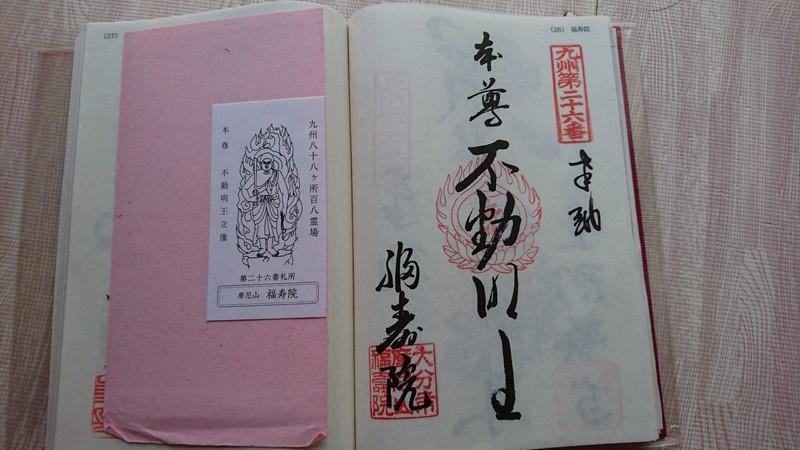 (26) 福寿院
九州第二十六番
奉納
本尊
不動明王
福寿院
大分市
福壽院
(27)
九州八十八ヶ所百八霊場
本尊 不動明王立像
第二十六番札所
摩尼山 福寿院